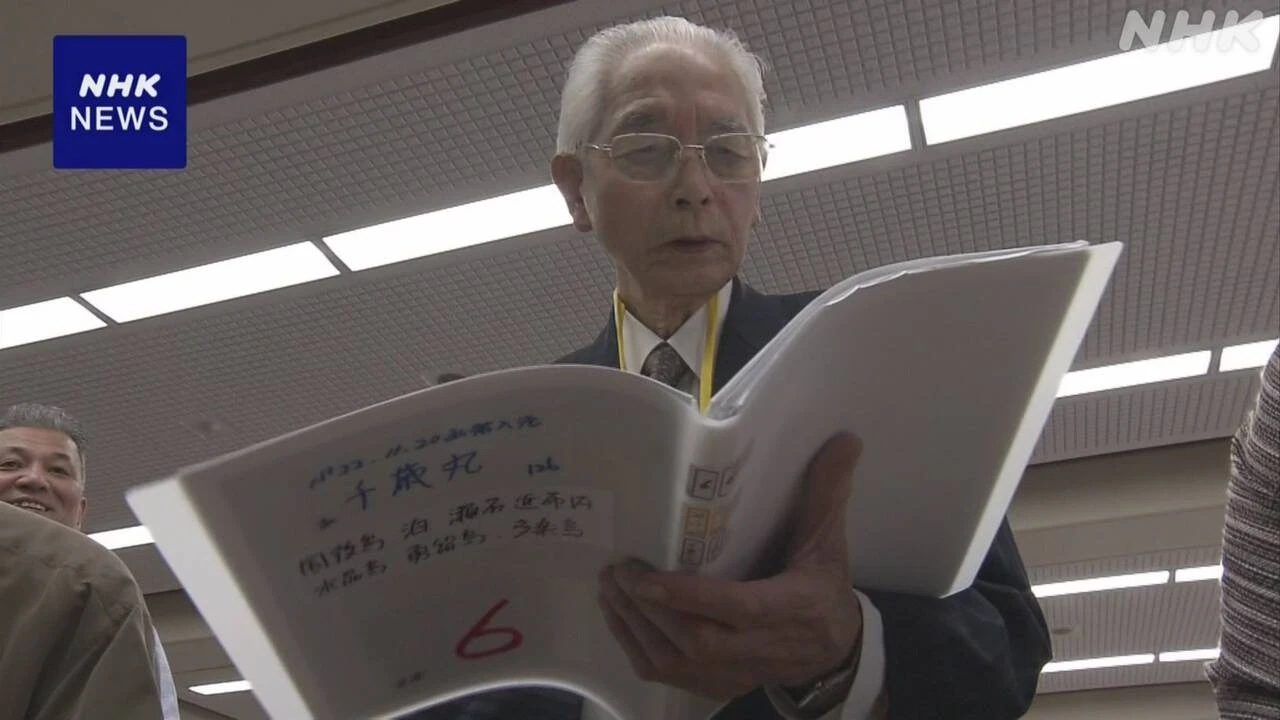 NHK
NEWS
NHK
22.11.20函館入港
千歳丸 126
国後島 泊 瀬石 近布内
水晶島 勇留島・多楽島
6